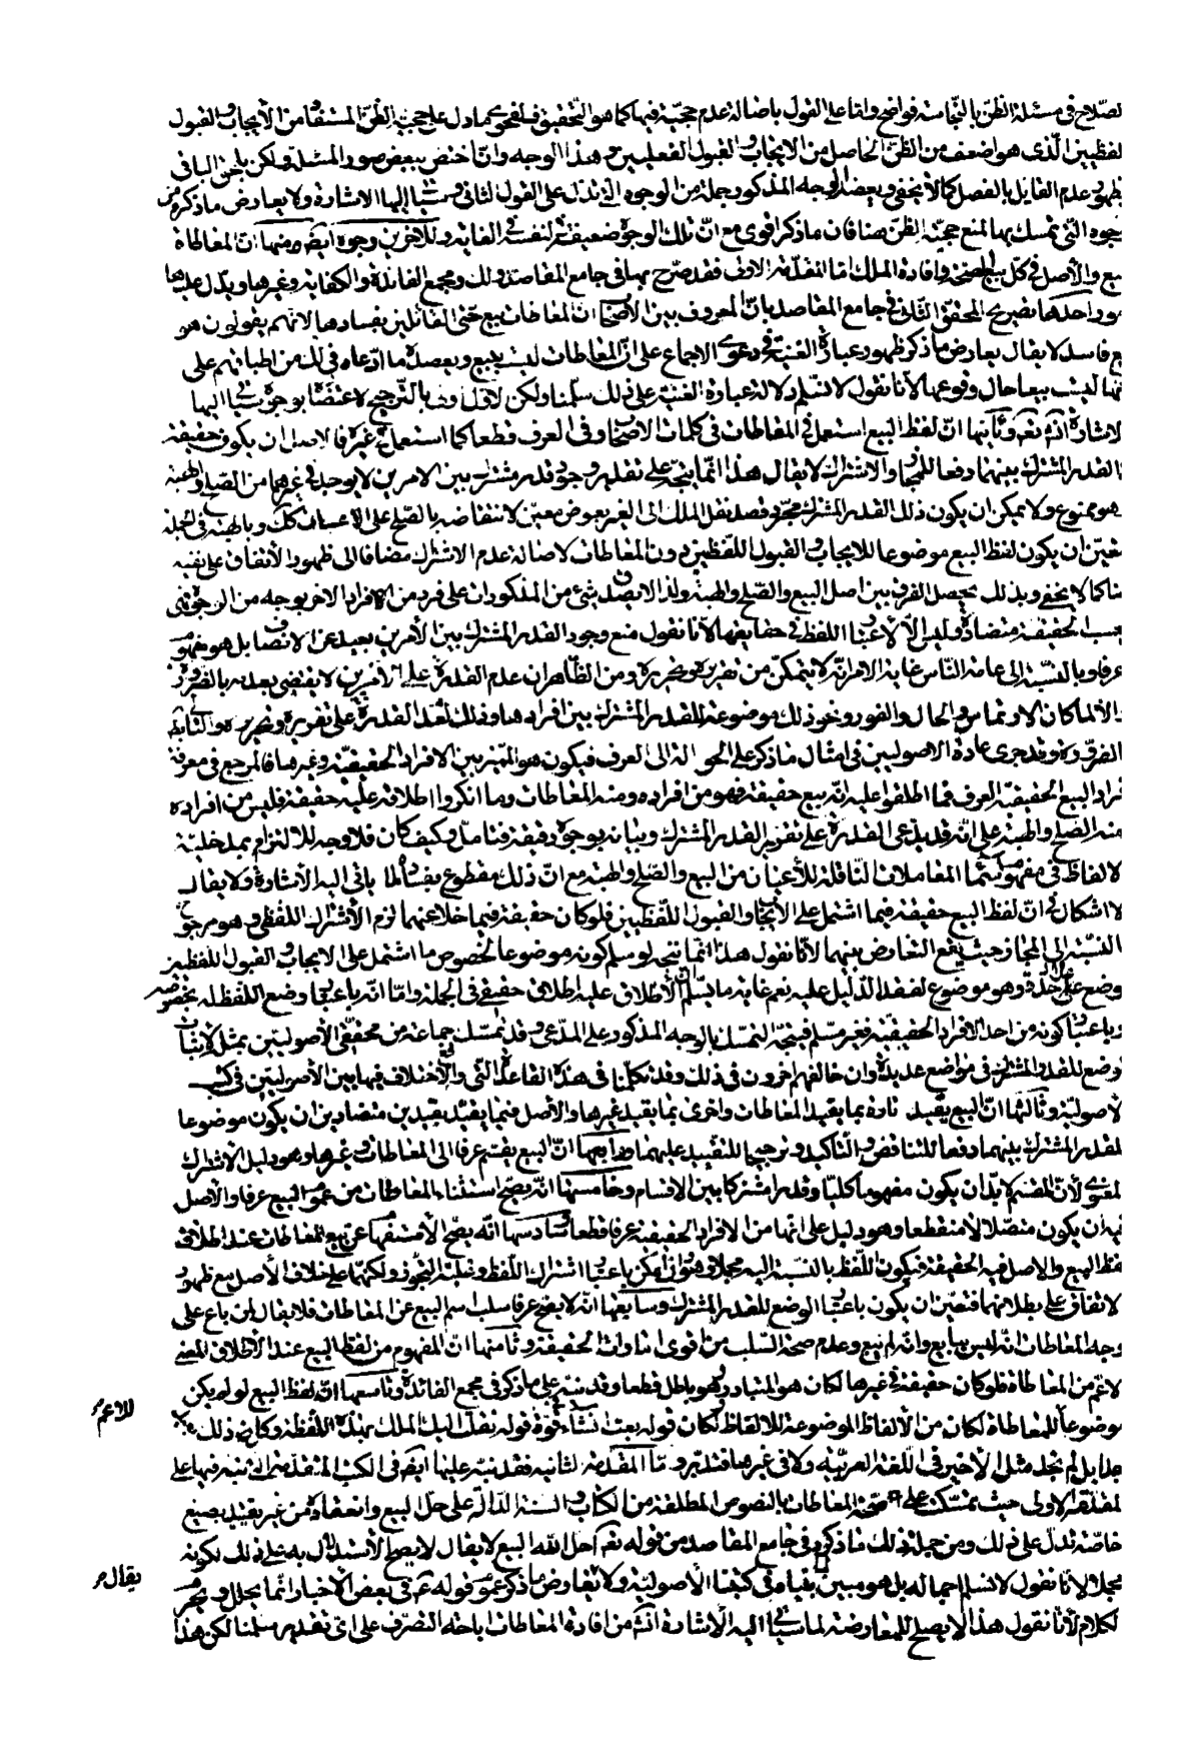 لصّلاح فى مسئلة الظنّ بالنّجاسة فواضح وامّا على القول باصالة عدم حجيّته فيها كما هو التّحقيق فلفحوى ما دل على حجيّة الظنّ المستفاد من الأيجاب والقبول
لفظيين الّذى هو اضعف من الظنّ الحاصل من الايجاب والقبول الفعليين وهذا الوجه وان اختص ببعض صور المسئلة ولكن يلحق الباقى
ظهور عدم القايل بالفصل كما لا يخفى ويعضد الوجه المذكور جملة من الوجوه الّتى تدل على القول الثانى وسيأتى اليها الاشارة ولا يعارض ما ذكر
جوه الّتى تمسك بها لمنع حجيّة الظنّ هنا فان ما ذكر اقوى مع انّ تلك الوجوه ضعيفة فى نفسها فى الغاية وللآخرين وجوه ايضا منها انّ المعاطاة
بيع والأصل فى كلّ بيع الصحة وافادة الملك امّا المقدّمة الاولى فقد صرّح بها فى جامع المقاصد ولك ومجمع الفائدة والكفاية وغيرها ويدّل عليها
مور احدها تصريح المحقق الثّانى فى جامع المقاصد بانّ المعروف بين الأصحاب ان المعاطات بيع حتّى القائلين بفسادها لانهم يقولون هو
ع فاسد لا يقال يعارض ما ذكر ظهور عبارة الغنية فى دعوى الاجماع على انّ المعاطات ليست ببيع ويعضده ما ادّعاه فى لك من اطباقهم على
نها ليست بيعا حال وقوعها لأنا نقول لا نسّلم دلالة عبارة الغنية على ذلك سلّمنا ولكن الاول اولى بالتّرجيح لاعتضاده بوجوه سيأتى اليها
لاشارة انش تعم وثانيها انّ لفظ البيع استعمل فى المعاطات فى كلمات الاصحاب وفى العرف قطعا كما استعمل فى غيره فالاصل ان يكون حقيقة
القدر المشترك بينهما دفعا للمجاز والاشتراك لا يقال هذا انّما يتجه على تقدير وجود قدر مشترك بين الامرين لا يوجد فى غيرهما من الصّلح والهبة
هو ممنوع ولا يمكن ان يكون ذلك القدر المشترك مجرّد قصد نقل الملك الى الغير بعوض معيّن لانتقاضه بالصّلح على الاعيان كك وبالهبة فى الجملة
تعيّن ان يكون لفظ البيع موضوعا للايجاب والقبول اللفظيين دون المعاطات لاصالة عدم الاشتراك مضافا الى ظهور الاتفاق على نفيه
نا كما لا يخفى وبذلك يحصل الفرق بين اصل البيع والصّلح والهبة ولذا لا يصدق شىء من المذكورات على فرد من افراد الاخر بوجه من الوجوه فهى
حسب الحقيقة متضادّة وليس إلّا لاعتبار اللفظ فى حقايقها لأنا نقول منع وجود القدر المشترك بين الأمرين بعيد عن الانصاف بل هو مفهوم
عرفا وبالنّسبة الى عامة النّاس غاية الامر انّه لا يتمكّن من تقريره وتحريره ومن الظّاهر ان عدم القدرة على الامرين لا يقتضى بعدمه بالضرورة
والألما كان الأمر والحال والفور ونحو ذلك موضوعة للقدر المشترك بين افرادها وذلك لعدم القدرة على تقريره وتحريره والتّالى
الضرورة وقد جرى عادة الاصوليين فى امثال ما ذكر على الحوالة الى العرف فيكون هو المميّز بين الافراد الحقيقيّة وغيرها فالمرجع فى معرفة
فراد البيع الحقيقيّة العرف فما اطلقوا عليه انّه بيع حقيقة فهو من افراده ومنه المعاطات وما انكروا اطلاقه عليه حقيقة فليس من افراده
منه الصّلح والهبة على انّه قد يدّعى القدرة على تقرير القدر المشترك وبيانه بوجوه دقيقة فتامّل وكيف كان فلا وجه للالتزام بمدخليّة
لالفاظ فى مفهوم المعاملات النّاقلة للأعيان من البيع والصّلح والهبة مع انّ ذلك مقطوع بفساده لما يأتى اليه الأشارة ولا يقال
لا اشكال فى انّ لفظ البيع حقيقة فيما اشتمل على الأيجاب والقبول اللّفظيين فلو كان حقيقة فيما خلا عنهما لزم الأشتراك اللفظى وهو مرجوح
النسبة الى المجاز حيث يقع التعارض بينهما لأنّا نقول هذا انّما يتجه لو سلّم كونه موضوعا لخصوص ما اشتمل على الايجاب والقبول اللفظيين
وضع على حدة وهو ممنوع لفقد الدّليل عليه نعم غاية ما يسلّم الأطلاق عليه اطلاق حقيقى فى الجملة وامّا انّه باعتبار وضع اللفظ له بخصوصه
وباعتبار كونه من احد الافراد الحقيقيّة فغير مسّلم فيتجه التمسّك بالوجه المذكور على المدّعى وقد تمسّك جماعة من محققى الأصوليّين بمثله لاثبات
وضع للقدر المشترك فى مواضع عديدة وان خالفهم اخرون فى ذلك وقد تكلّمنا فى هذه القاعدة الّتى وقع الأختلاف فيها بين الأصوليّين فى كتب
لأصوليّة وثالثها انّ البيع يقيد تارة بما يفيد المعاطات واخرى بما يفيد غيرها والأصل فيما يقيّد بقيدين متضادين ان يكون موضوعا
لقدر المشترك بينهما دفعا للتناقض والتّأكيد وترجيحا للتقييد عليهما ورابعها انّ البيع يقسّم عرفا الى المعاطات وغيرها وهو دليل الأشتراك
لمعنوى لأنّ المقسم لا بدّ ان يكون مفهوما كليّا وقدرا مشتركا بين الاقسام وخامسها انّه يصحّ استثناء المعاطات من عموم البيع عرفا والأصل
فيه ان يكون متصلا لا منقطعا وهو دليل على انّها من الافراد الحقيقية عرفا قطعا وسادسها انّه يصّح الأستفهام عن بيع المعاطات عند اطلاق
فظ البيع والاصل فيه الحقيقة فيكون اللّفظ بالنّسبة اليه مجملا وهو ان امكن باعتبار اشتراك اللّفظ وغلبة التجّوز ولكنّهما على خلاف الأصل مع ظهور
لاتفاق على بطلانهما فتعيّن ان يكون باعتبار الوضع للقدر المشترك وسابعها انّه لا يصّح عرفا سلب اسم البيع عن المعاطات فلا يقال لمن باع على
وجه المعاطات انّه ليس ببايع وانّه لم يبع وعدم صحة السّلب من اقوى امارات الحقيقة وثامنها انّ المفهوم من لفظ البيع عند الأطلاق المعنى
لاعّم من المعاطاة فلو كان حقيقة فى غيرها لكان هو المتبادر وهو باطل قطعا وقد نبّه على ما ذكر فى مجمع الفائدة وتاسعها انّ لفظ البيع لو لم يكن
موضوعاً للمعاطاة لكان من الألفاظ الموضوعة للالفاظ لكان قوله بعت انشاء بقوة قوله نقلت اليك الملك بهذه اللّفظة وكان ذلك
جدا بل لم نجد مثل الأخير فى اللّغة العربيّة ولا فى غيرها فتدبّر وامّا المقدّمة الثّانية فقد نبّه عليها ايضا فى الكتب المتقدّمة المنبّه فيها على
لمقدّمة الاولى حيث تمسّكت على صحّة المعاطات بالنصوص المطلقة من الكتاب والسنة الدّالّة على حلّ البيع وانعقاده من غير تقييد بصيغ
خاصّة تدلّ على ذلك ومن جملة ذلك ما ذكره فى جامع المقاصد من قوله تعم احلّ الله البيع لا يقال لا يصح الأستدلال به على ذلك لكونه
مجملا لأنا نقول لا نسلم اجماله بل هو مبين بيناه فى كتبنا الأصوليّة ولا يعارض ما ذكر عموم قوله عم فى بعض الأخبار انّما يحلل ويحرّم
لكلام لأنّا نقول هذا لا يصلح للمعارضة لما سيأتى اليه الاشارة انش من افادة المعاطات اباحة التّصرف على اى تقدير سلّمنا لكن هذا
للاعم
يقال